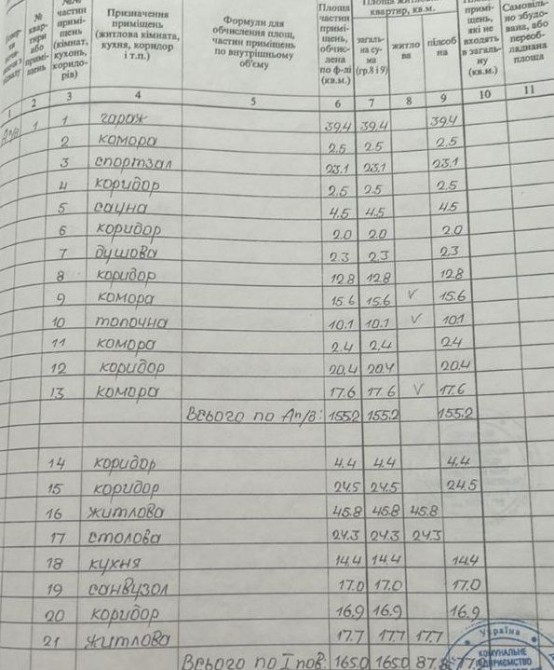 № квар- тири або примі- щень | №№ частин примі- щень (кімнат, кухонь, коридо- рів) | Призначення приміщень (житлова кімната, кухня, коридор і т.п.) | Формули для обчислення площ, частин приміщень по внутрішньому об'єму | Площа частин примі- щень, обчис- лена по ф-лі (кв.м.) | квартир, кв.м. | загаль- на су- ма (гр.8 і 9) | житло ва | підсоб на | примі- щень, які не входять в загаль- ну (кв.м.) | Самовіль- но збудо- вана, або перооб- ладнана площа
1 2 3 4 5 6 7 8 9 10 11
1 1 гараж 39.4 39.4 39.4
2 комора 2.5 2.5 2.5
3 спортзал 23.1 23.1 23.1
4 коридор 2.5 2.5 2.5
5 сауна 4.5 4.5 4.5
6 коридор 2.0 2.0 2.0
7 душова 2.3 2.3 2.3
8 коридор 12.8 12.8 12.8
9 комора 15.6 15.6 V 15.6
10 топочна 10.1 10.1 V 10.1
11 комора 2.4 2.4 2.4
12 коридор 20.4 20.4 20.4
13 комора 17.6 17.6 V 17.6
Всього по Ап/в: 155.2 155.2 155.2
14 коридор 4.4 4.4 4.4
15 коридор 24.5 24.5 24.5
16 житлова 45.8 45.8 45.8
17 столова 24.3 24.3 24.3
18 кухня 14.4 14.4 14.4
19 санвузол 17.0 17.0 17.0
20 коридор 16.9 16.9 16.9
21 житлова 17.7 17.7 17.7
Всього по I пов: 165.0 165.0 87.8
Україна
КОМУНАЛЬНЕ
ПІДПРИЄМСТВО